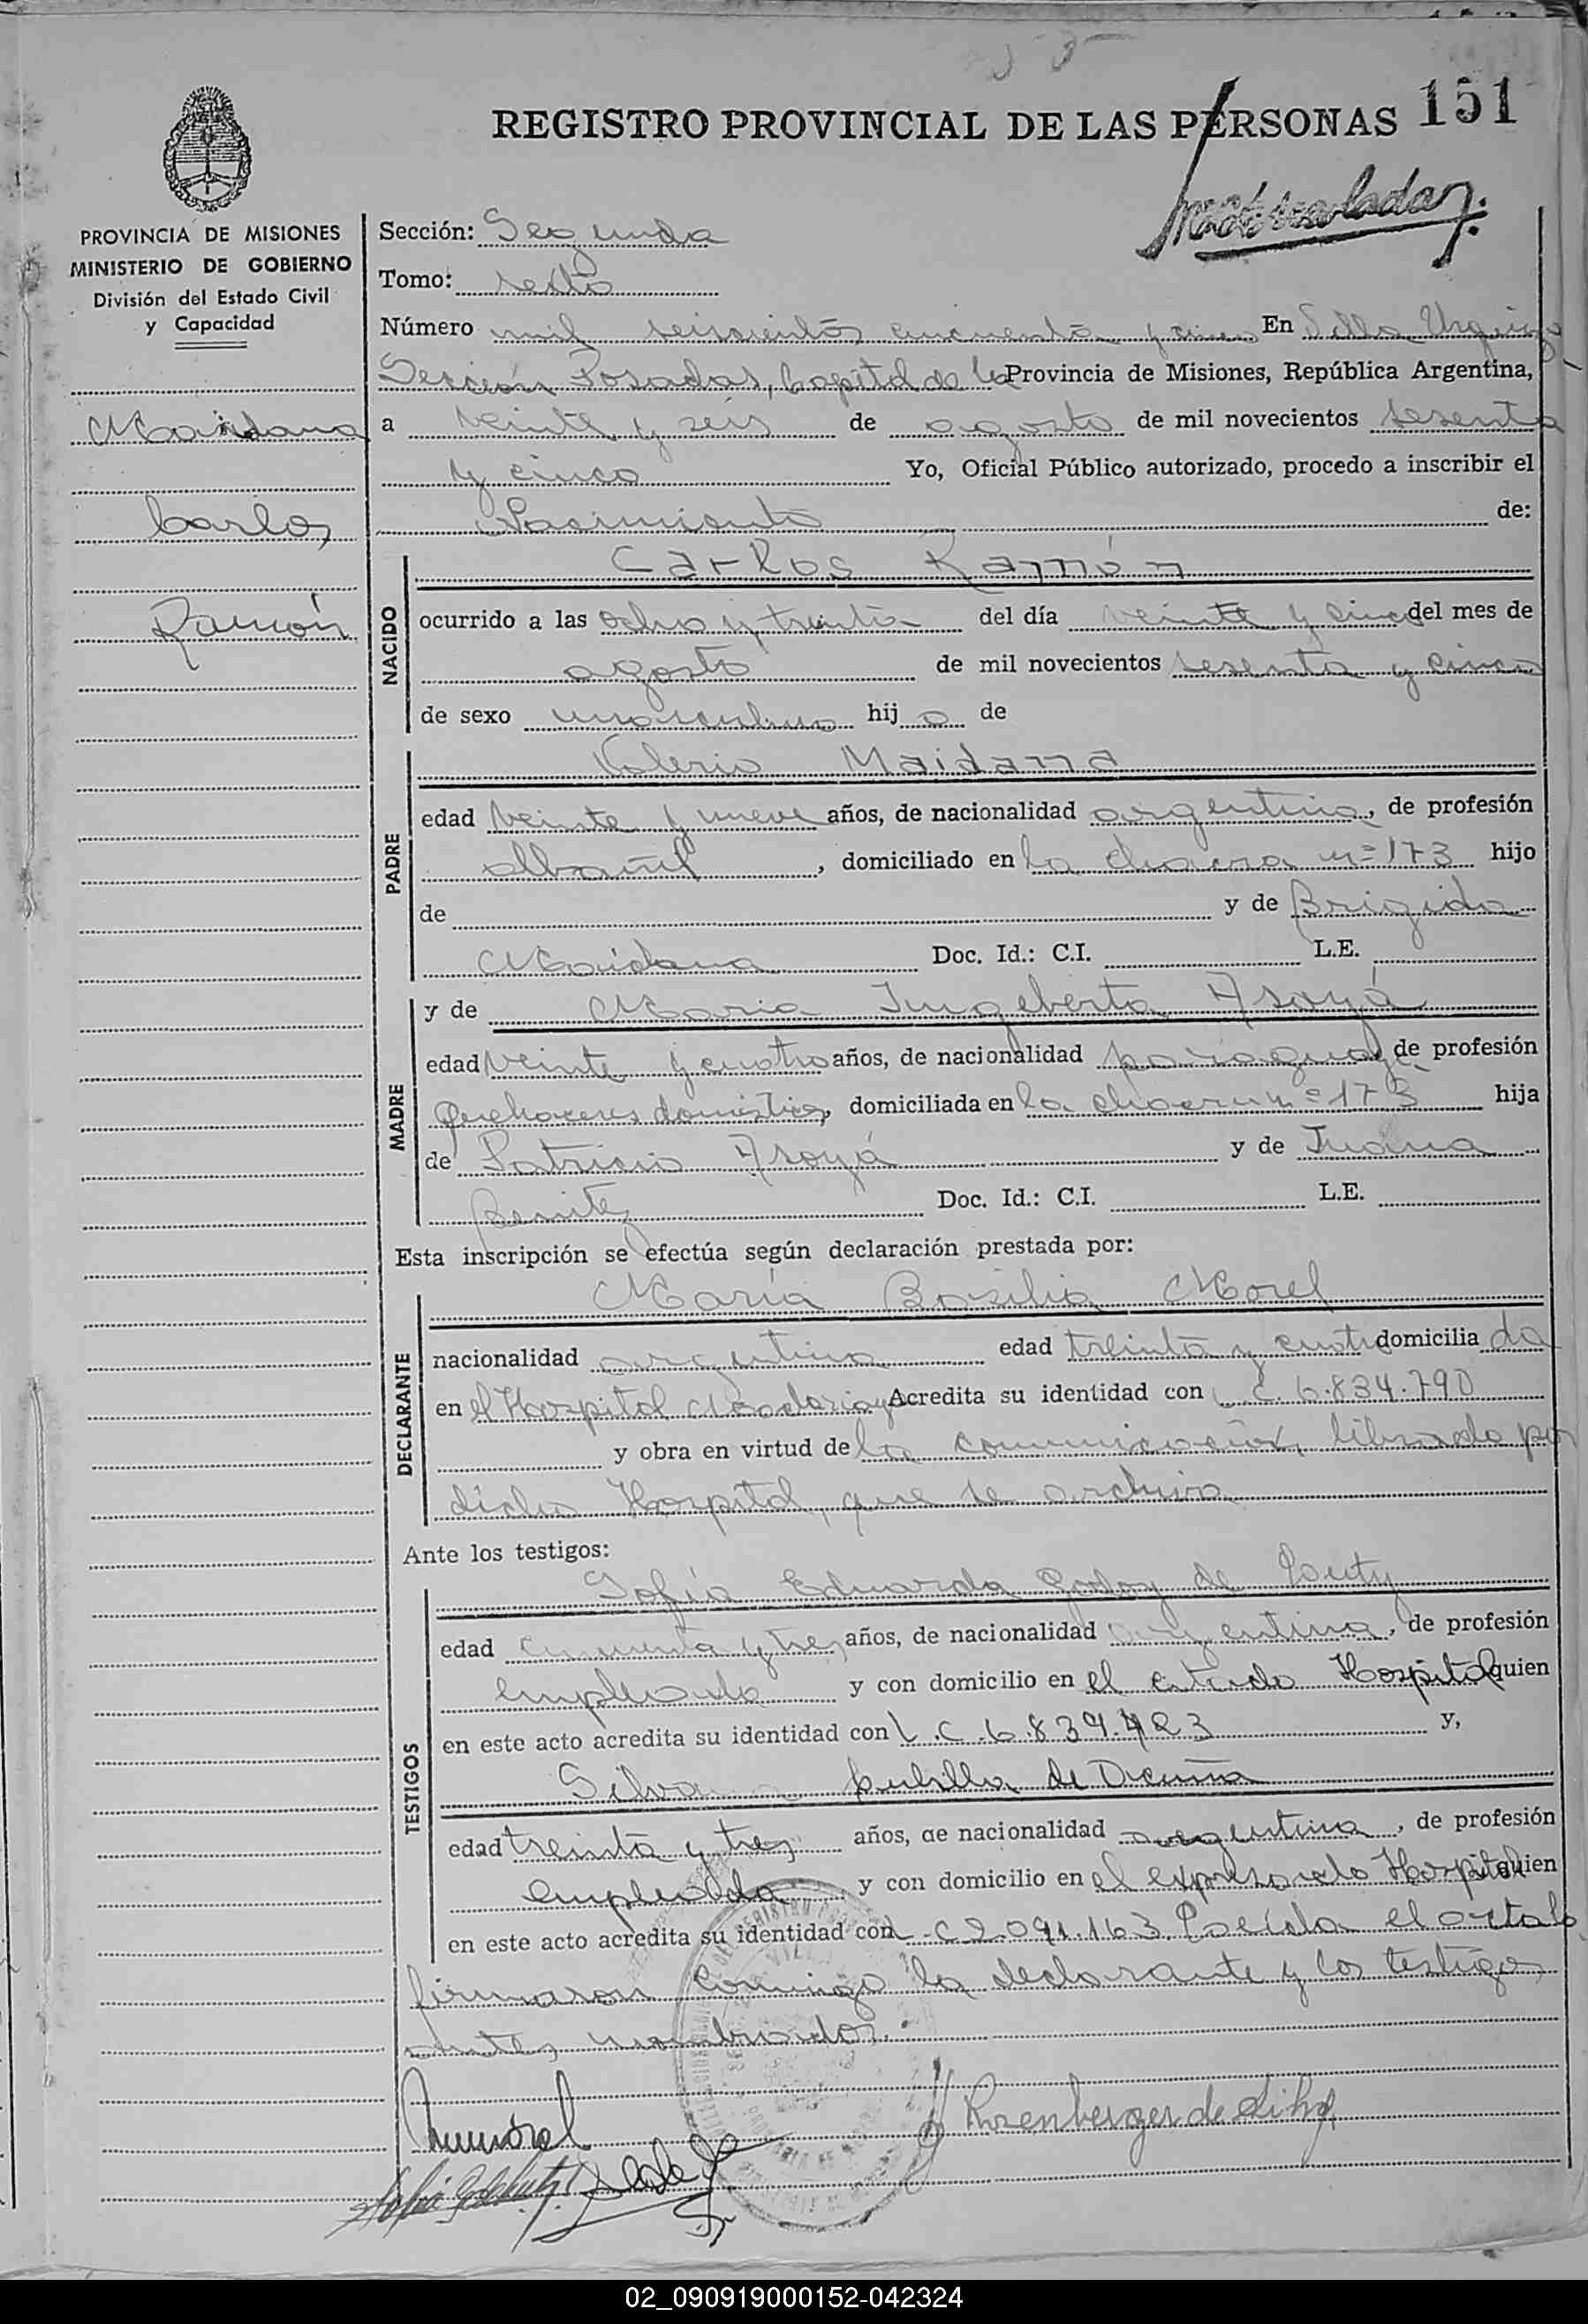 151
REGISTRO PROVINCIAL DE LAS PERSONAS
PROVINCIA DE MISIONES
MINISTERIO DE GOBIERNO
División del Estado Civil
y Capacidad
Maidana
Carlos
Ramón
Sección: Segunda
Tomo: sexto
Número mil seiscientos cincuenta y cinco En Villa Urquiza
Sección Posadas, Capital de la Provincia de Misiones, República Argentina,
a veinte y seis de agosto de mil novecientos sesenta
y cinco Yo, Oficial Público autorizado, procedo a inscribir el
Nacimiento de:
NACIDO
Carlos Ramón
ocurrido a las ocho y treinta del día veinte y cinco del mes de
agosto de mil novecientos sesenta y cinco
de sexo masculino hijo de
PADRE
Valerio Maidana
edad veinte y nueve años, de nacionalidad argentina, de profesión
albañil, domiciliado en la chacra nº 173 hijo
de y de Brigida
Maidana Doc. Id.: C.I. L.E.
MADRE
y de Maria Ingeberta Asoyá
edad veinte y cuatro años, de nacionalidad paraguaya de profesión
quehaceres domésticos, domiciliada en la chacra nº 173 hija
de Patricio Asoyá y de Juana
Benitez Doc. Id.: C.I. L.E.
Esta inscripción se efectúa según declaración prestada por:
DECLARANTE
María Basilia Morel
nacionalidad argentina edad treinta y cuatro domiciliada
en el Hospital Madariaga Acredita su identidad con L.C. 6.834.790
y obra en virtud de la comunicación, librada por
dicho Hospital, que se archiva
Ante los testigos:
TESTIGOS
Sofía Eduarda Godoy de
edad y tres años, de nacionalidad argentina, de profesión
empleada y con domicilio en el citado Hospital quien
en este acto acredita su identidad con L.C. 6.839.423 y,
Silva de
edad treinta y tres años, de nacionalidad argentina, de profesión
empleada y con domicilio en el expresado Hospital quien
en este acto acredita su identidad con L.C 2.091.163. Leída el acta la
firmaron conmigo la declarante y los testigos
antes nombrados.
Rosenberger de
02_090919000152-042324